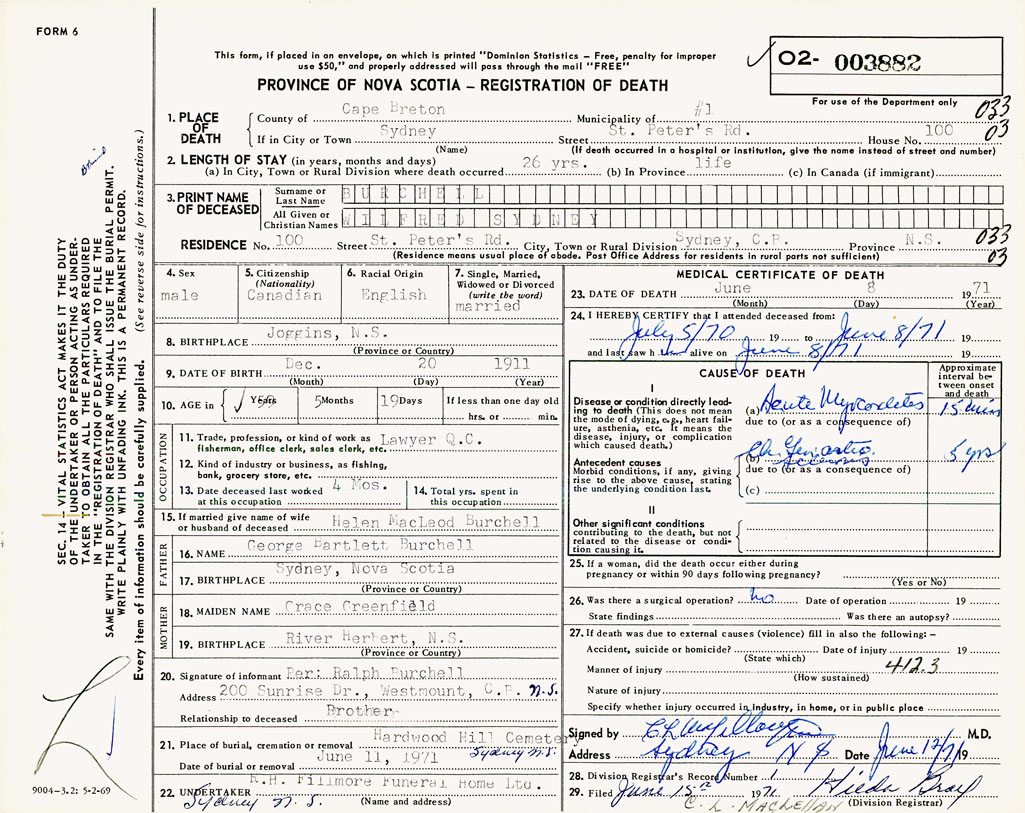 FORM 6
This form, if placed in an envelope, on which is printed "Dominion Statistics – Free, penalty for improper
use $50," and properly addressed will pass through the mail "FREE"
O2- 003882
PROVINCE OF NOVA SCOTIA – REGISTRATION OF DEATH
For use of the Department only
033
03
1. PLACE OF DEATH
County of Cape Breton Municipality of #1
If in City or Town Sydney Street St. Peter's Rd. House No. 100
(Name) (If death occurred in a hospital or institution, give the name instead of street and number)
2. LENGTH OF STAY (in years, months and days)
(a) In City, Town or Rural Division where death occurred 26 yrs. (b) In Province life (c) In Canada (if immigrant)
3. PRINT NAME OF DECEASED
Surname or Last Name BURCHELL
All Given or Christian Names WILFRED SYDNEY
RESIDENCE No. 100 Street St. Peter's Rd. City, Town or Rural Division Sydney, C.B. Province N.S.
033
03
(Residence means usual place of abode. Post Office Address for residents in rural parts not sufficient)
4. Sex
male
5. Citizenship
(Nationality)
Canadian
6. Racial Origin
English
7. Single, Married,
Widowed or Divorced
(write the word)
married
8. BIRTHPLACE Joggins, N.S.
(Province or Country)
9. DATE OF BIRTH Dec. 20 1911
(Month) (Day) (Year)
10. AGE in Years 5 Months 19 Days If less than one day old
hrs. or min.
OCCUPATION
11. Trade, profession, or kind of work as Lawyer Q.C.
fisherman, office clerk, sales clerk, etc.
12. Kind of industry or business, as fishing,
bank, grocery store, etc.
13. Date deceased last worked 4 Mos.
at this occupation
14. Total yrs. spent in
this occupation
15. If married give name of wife
or husband of deceased Helen MacLeod Burchell
FATHER
16. NAME George Bartlett Burchell
17. BIRTHPLACE Sydney, Nova Scotia
(Province or Country)
MOTHER
18. MAIDEN NAME Grace Greenfield
19. BIRTHPLACE River Herbert, N.S.
(Province or Country)
20. Signature of informant Per: Ralph Burchell
Address 200 Sunrise Dr., Westmount, C.B. N.S.
Relationship to deceased Brother
21. Place of burial, cremation or removal Hardwood Hill Cemetery
Sydney N.S.
Date of burial or removal June 11, 1971
22. UNDERTAKER R.H. Fillmore Funeral Home Ltd.
Sydney N.S. (Name and address)
MEDICAL CERTIFICATE OF DEATH
23. DATE OF DEATH June 8 1971
(Month) (Day) (Year)
24. I HEREBY CERTIFY that I attended deceased from:
July 5/70 19 to June 8/71 19
and last saw him alive on June 8/71 19
CAUSE OF DEATH
Approximate
interval be-
tween onset
and death
I
Disease or condition directly lead-
ing to death (This does not mean
the mode of dying, e.g., heart fail-
ure, asthenia, etc. It means the
disease, injury, or complication
which caused death.)
(a) Acute 15 mins
due to (or as a consequence of)
Antecedent causes
Morbid conditions, if any, giving
rise to the above cause, stating
the underlying condition last.
(b) 5 yrs
due to (or as a consequence of)
(c)
II
Other significant conditions
contributing to the death, but not
related to the disease or condi-
tion causing it.
25. If a woman, did the death occur either during
pregnancy or within 90 days following pregnancy?
(Yes or No)
26. Was there a surgical operation? no Date of operation 19
State findings Was there an autopsy?
27. If death was due to external causes (violence) fill in also the following: –
Accident, suicide or homicide? Date of injury 19
(State which)
Manner of injury 412.3
(How sustained)
Nature of injury
Specify whether injury occurred in industry, in home, or in public place
Signed by M.D.
Address Sydney N S Date June 12/71 19
28. Division Registrar's Record Number 1
29. Filed June 15 1971 Hilda Gray
(Division Registrar)
C. L. MACLELLAN
SEC. 14 – VITAL STATISTICS ACT MAKES IT THE DUTY
OF THE UNDERTAKER OR PERSON ACTING AS UNDER-
TAKER TO OBTAIN ALL THE PARTICULARS REQUIRED
IN THE "REGISTRATION OF DEATH" AND TO FILE THE
SAME WITH THE DIVISION REGISTRAR WHO SHALL ISSUE THE BURIAL PERMIT.
WRITE PLAINLY WITH UNFADING INK. THIS IS A PERMANENT RECORD.
Every item of information should be carefully supplied. (See reverse side for instructions.)
9004-3.2: 5-2-69